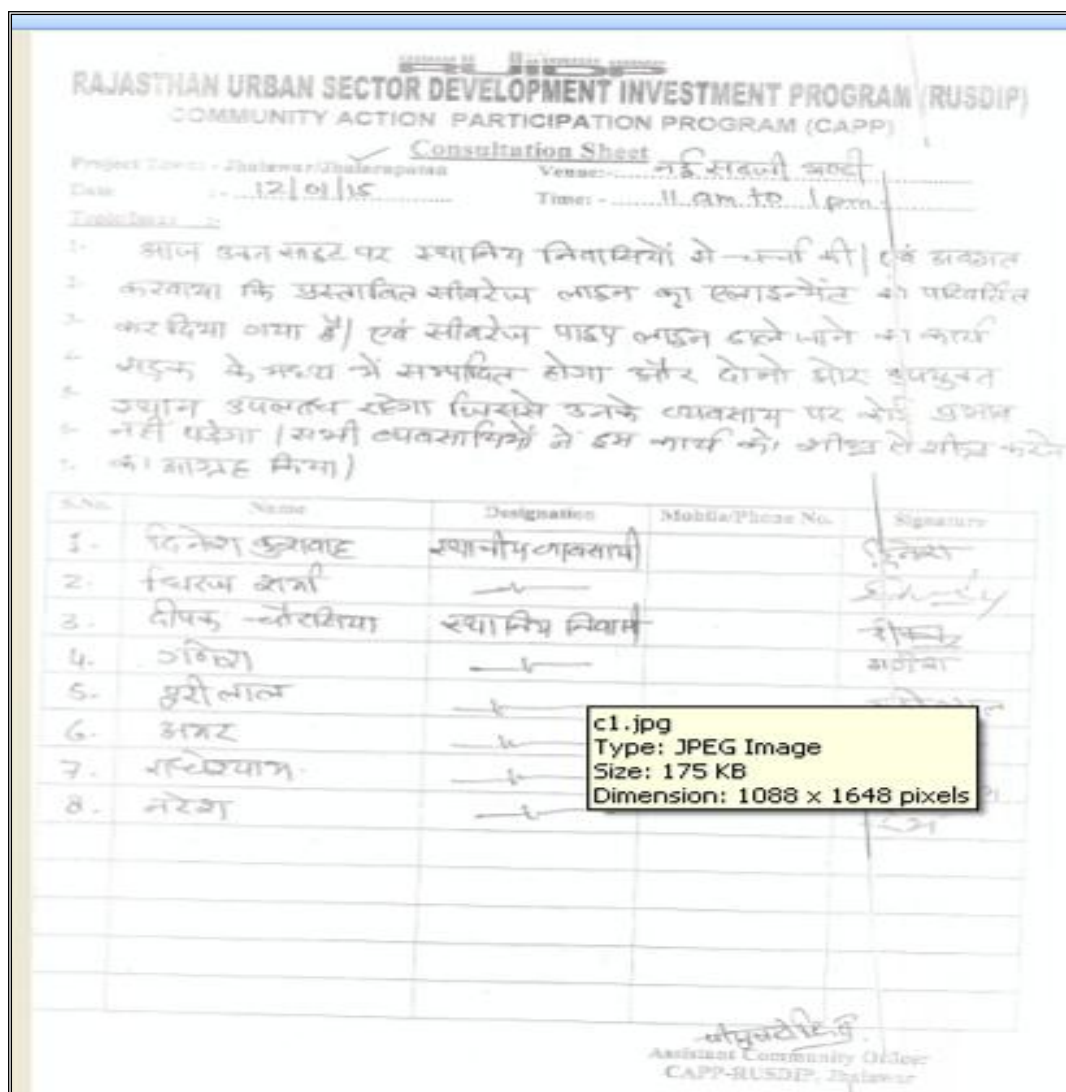 RUIDP
RAJASTHAN URBAN SECTOR DEVELOPMENT INVESTMENT PROGRAM (RUSDIP)
COMMUNITY ACTION PARTICIPATION PROGRAM (CAPP)
Consultation Sheet
Project Town: - Jhalawar/Jhalarapatan Venue:- नई सब्जी मण्डी
Date :- 12/01/15 Time: - 11 am to 1 pm
1- आज उक्त साइट पर स्थानिय निवासियों से चर्चा की| एवं अवगत
2- करवाया कि प्रस्तावित सीवरेज लाइन का एलाइन्मेंट को परिवर्तित
3- कर दिया गया है| एवं सीवरेज पाइप लाइन डाले जाने का कार्य
4- सड़क के मध्य में सम्पादित होगा और दोनो ओर उपयुक्त
5- स्थान उपलब्ध रहेगा जिससे उनके व्यवसाय पर कोई प्रभाव
6- नहीं पडेगा | सभी व्यवसायियों ने इस कार्य को शीघ्र से शीघ्र करने
7- का आग्रह किया|
S.No. Name Designation Mobile/Phone No. Signature
1- दिनेश कुशवाह स्थानीय व्यवसायी दिनेश
2- धिरज शर्मा
3- दीपक चौरसिया स्थानिय निवासी
4- गणेश गणेश
5- हरीलाल
6- अमर
7- राधेश्याम
8- नरेश
c1.jpg
Type: JPEG Image
Size: 175 KB
Dimension: 1088 x 1648 pixels
Assistant Community Officer
CAPP-RUSDIP, Jhalawar